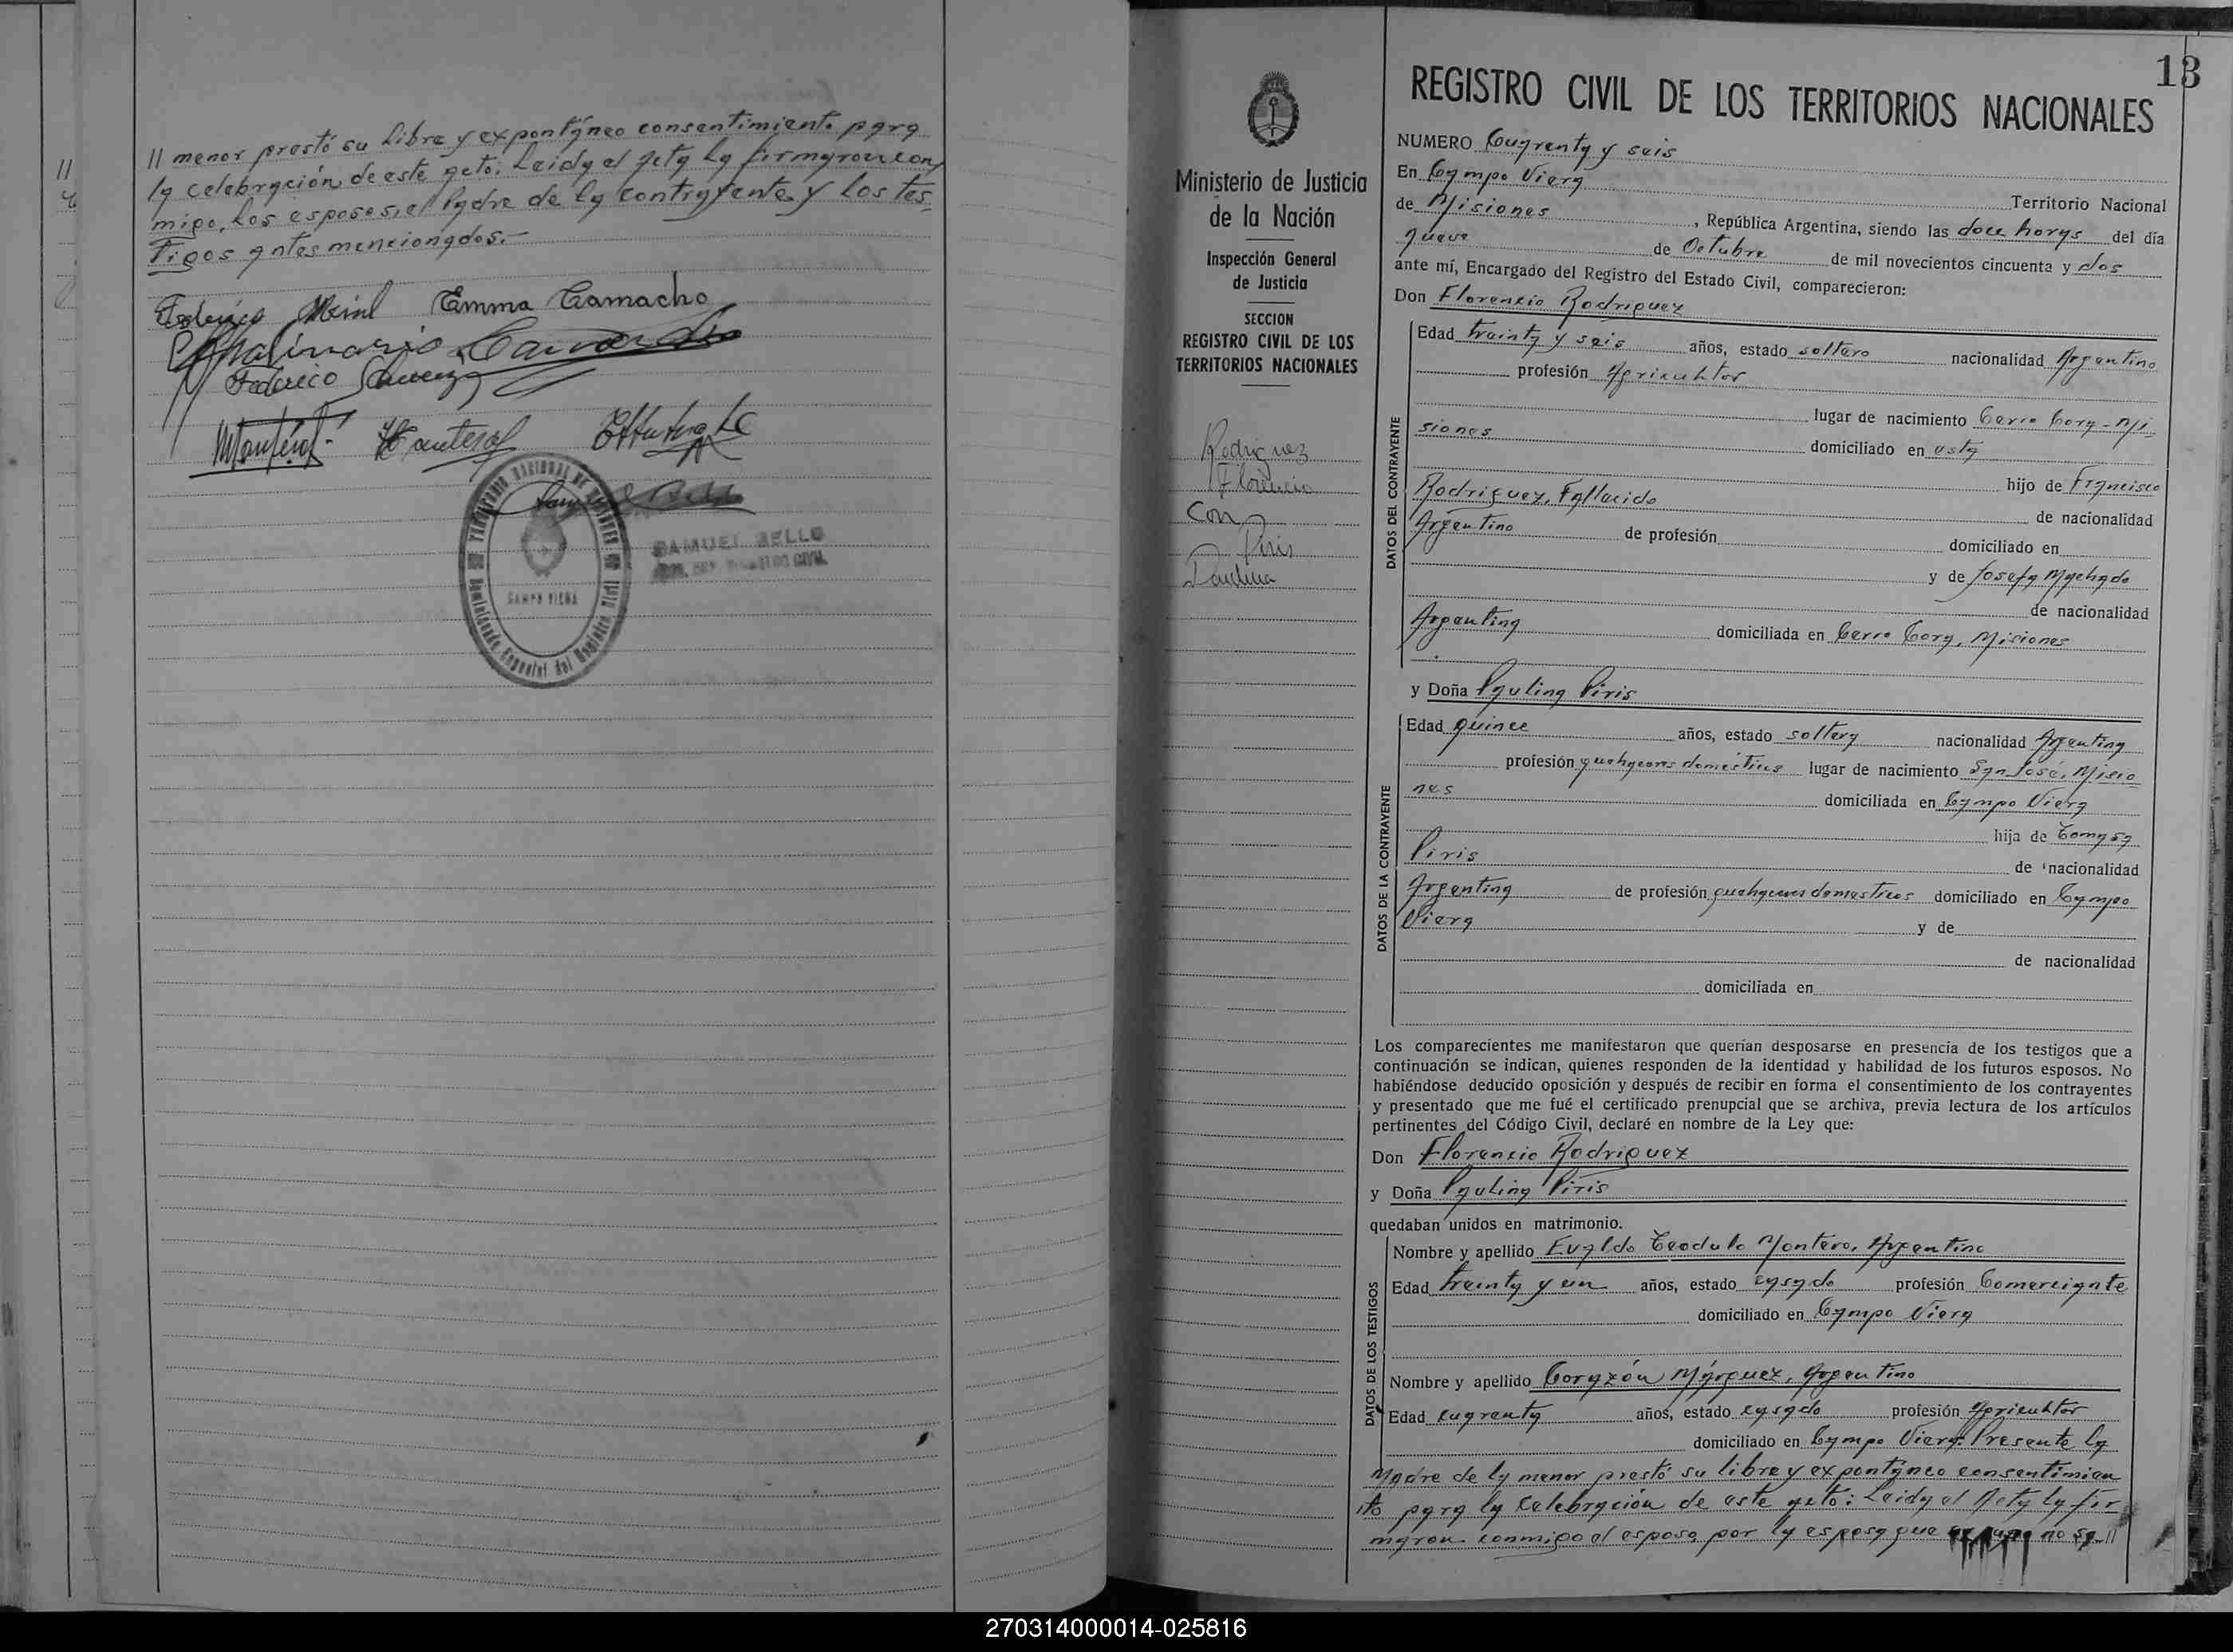 // menor prestó su libre y expontáneo consentimiento para
la celebración de este acto: Leida el Acta la firmaron con,
migo, los esposos, el Padre de la contrayente y los tes-
tigos antes mencionados.-
Federico Meinl Emma Camacho
Camacho
Federico
SAMUEL BELLO
CAMPO VIERA
13
REGISTRO CIVIL DE LOS TERRITORIOS NACIONALES
Ministerio de Justicia
de la Nación
Inspección General
de Justicia
SECCION
REGISTRO CIVIL DE LOS
TERRITORIOS NACIONALES
Rodriguez
Florencio
Con
Piris
Paulina
NUMERO Cuarenta y seis
En Campo Viera Territorio Nacional
de Misiones, República Argentina, siendo las doce horas del día
nueve de Octubre de mil novecientos cincuenta y dos
ante mí, Encargado del Registro del Estado Civil, comparecieron:
Don Florencio Rodriguez
DATOS DEL CONTRAYENTE
Edad treinta y seis años, estado soltero nacionalidad Argentino
profesión Agricultor
lugar de nacimiento Cerro Cora - Mi-
siones domiciliado en esta
hijo de Francisco
Rodriguez, Fallecido de nacionalidad
Argentino de profesión domiciliado en
y de Josefa Machado
de nacionalidad
Argentina domiciliada en Cerro Cora, Misiones
y Doña Paulina Piris
DATOS DE LA CONTRAYENTE
Edad quince años, estado soltera nacionalidad Argentina
profesión quehaceres domésticos lugar de nacimiento San José, Misio
nes domiciliada en Campo Viera
hija de Tomasa
Piris de nacionalidad
Argentina de profesión quehaceres domesticos domiciliado en Campo
Viera y de
de nacionalidad
domiciliada en
Los comparecientes me manifestaron que querían desposarse en presencia de los testigos que a
continuación se indican, quienes responden de la identidad y habilidad de los futuros esposos. No
habiéndose deducido oposición y después de recibir en forma el consentimiento de los contrayentes
y presentado que me fué el certificado prenupcial que se archiva, previa lectura de los artículos
pertinentes del Código Civil, declaré en nombre de la Ley que:
Don Florencio Rodriguez
y Doña Paulina Piris
quedaban unidos en matrimonio.
DATOS DE LOS TESTIGOS
Nombre y apellido Evaldo Teodulo Montero, Argentino
Edad treinta y un años, estado casado profesión Comerciante
domiciliado en Campo Viera
Nombre y apellido Corazón Márquez, Argentino
Edad cuarenta años, estado casado profesión Agricultor
domiciliado en Campo Viera: Presente la
Madre de la menor prestó su libre y expontáneo consentimien
to para la celebración de este acto: Leida el Acta la fir
maron conmigo el esposo, por la esposa que no sa //
270314000014-025816